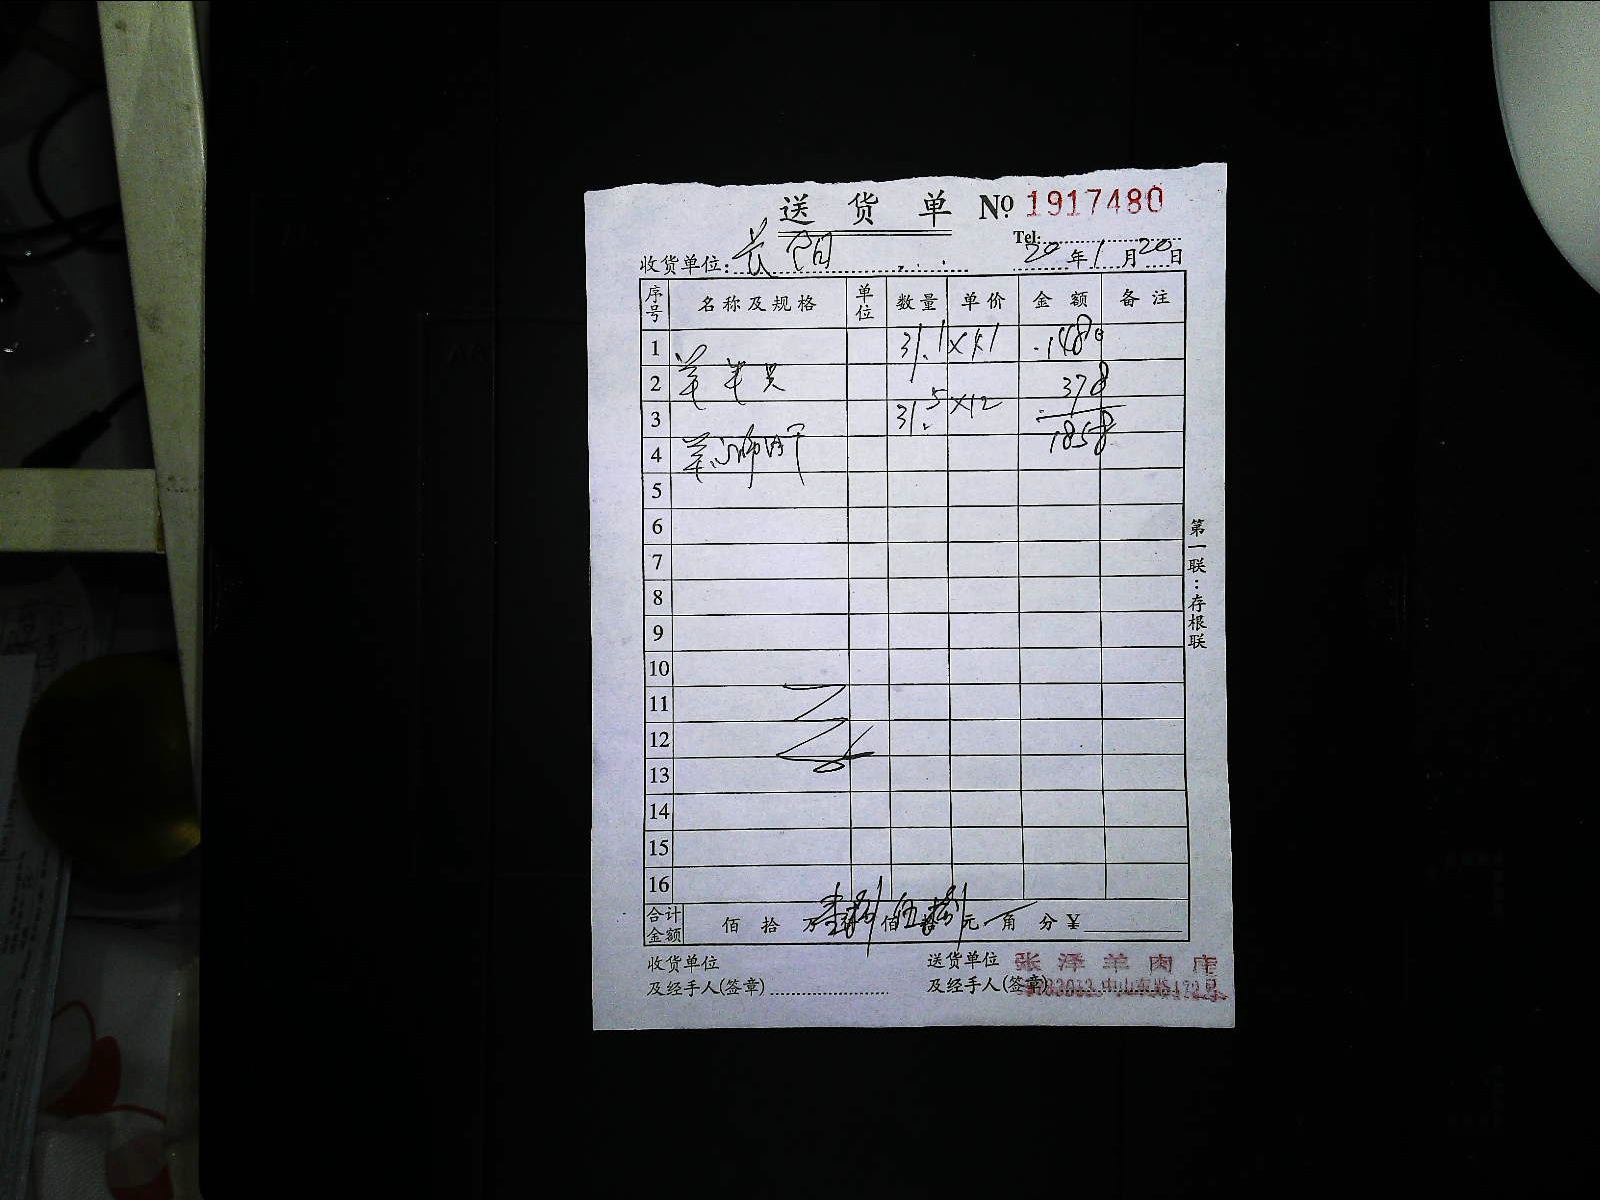 送货单 № 1917480
Tel:
收货单位: 20年1月20日
序号 名称及规格 单位 数量 单价 金额 备注
1 31.1 ×
2 羊 378
3 31.5 ×12
1858
4 羊
5
6
7
8
9
10
11
12
13
14
15
16
合计金额 佰拾万壹捌佰伍捌元 角 分 ¥
收货单位 送货单位 张泽羊肉店
及经手人(签章) 及经手人(签章) 中山东路172号
第一联:存根联